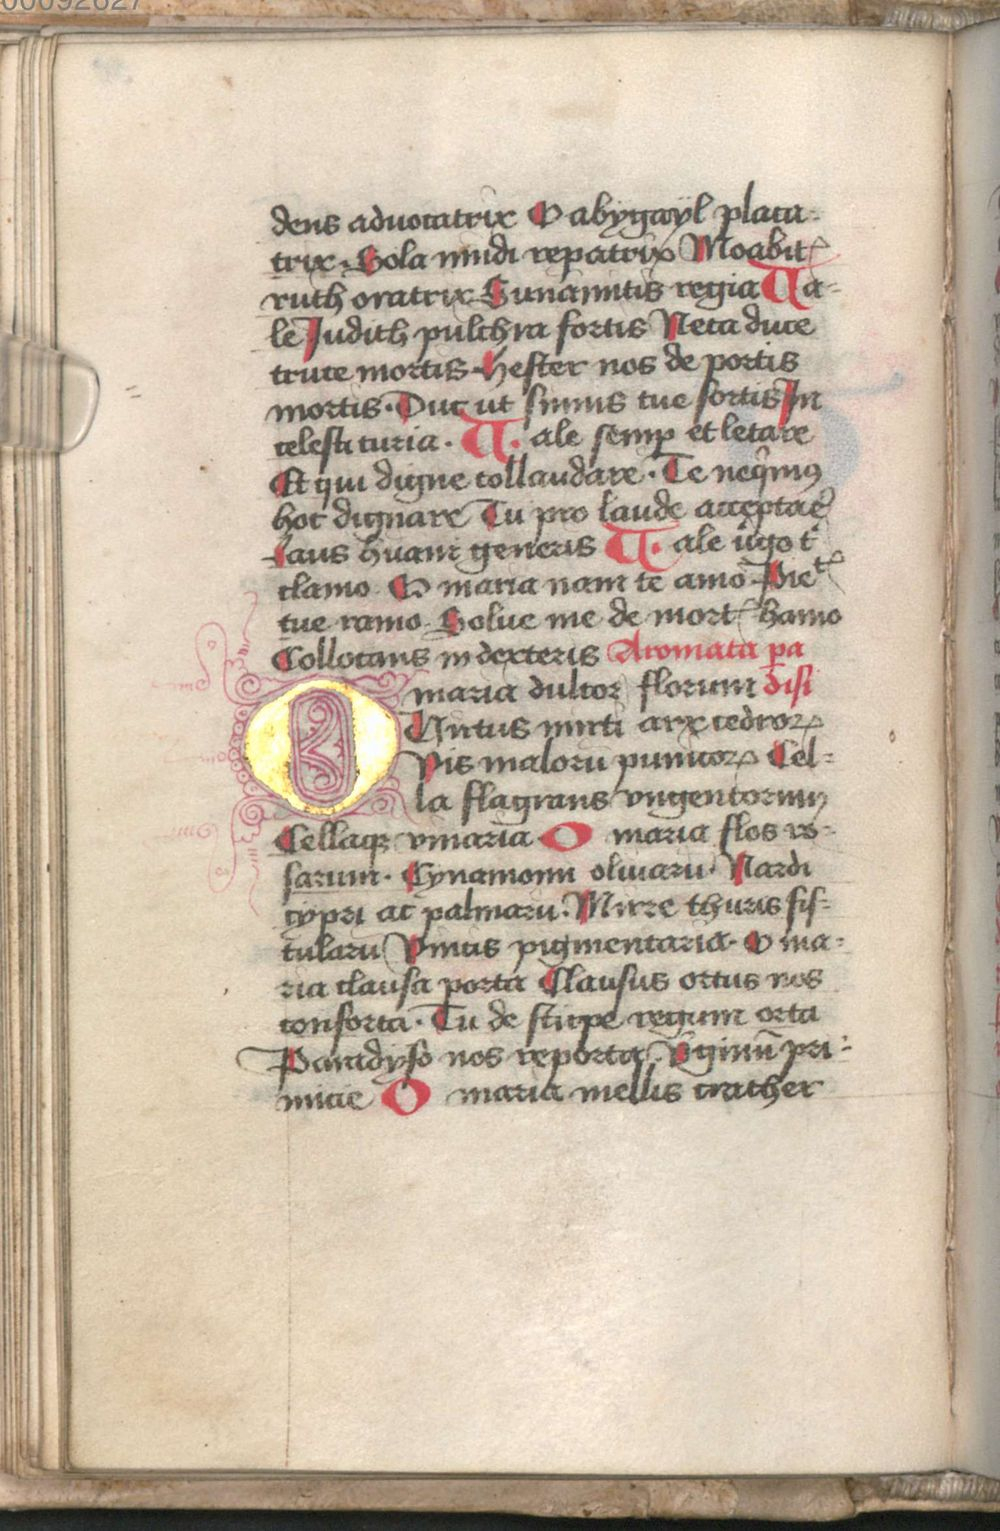 00092627
dens aduocatrix O abygayl placa-
trix. Sola mūdi repatrix Moabit
ruth oratrix Sunamitis regia Va-
le Judith pulchra fortis Neca duce
truce mortis. Hester nos de portis
mortis. Duc ut simus tue sortis In
celesti curia. V. ale semp et letare
Et qui digne collaudare. Te neqimus
hoc dignare Tu pro laude acceptare
Laus huam generis V. ale ugo t
clamo O maria nam te amo Piet
tue ramo Solue me de mort hamo
Collocans in dexteris Aromata pa
maria dulcor florum disi
Uirtus mirti arx cedroꝝ
Vis maloru punicoꝝ Cel-
la flagrans vngentorum
Cellaqꝫ vinaria O maria flos ro-
sarum. Cynamomi oliuaru. Nardi
cypri ac palmaru. Mirre thuris fis-
tularu Vnctis pigmentaria. O ma-
ria clausa porta Clausus ortus nos
conforta. Tu de stirpe regum orta
Paradyso nos reporta. Vginū pri-
micie O maria mellis crather